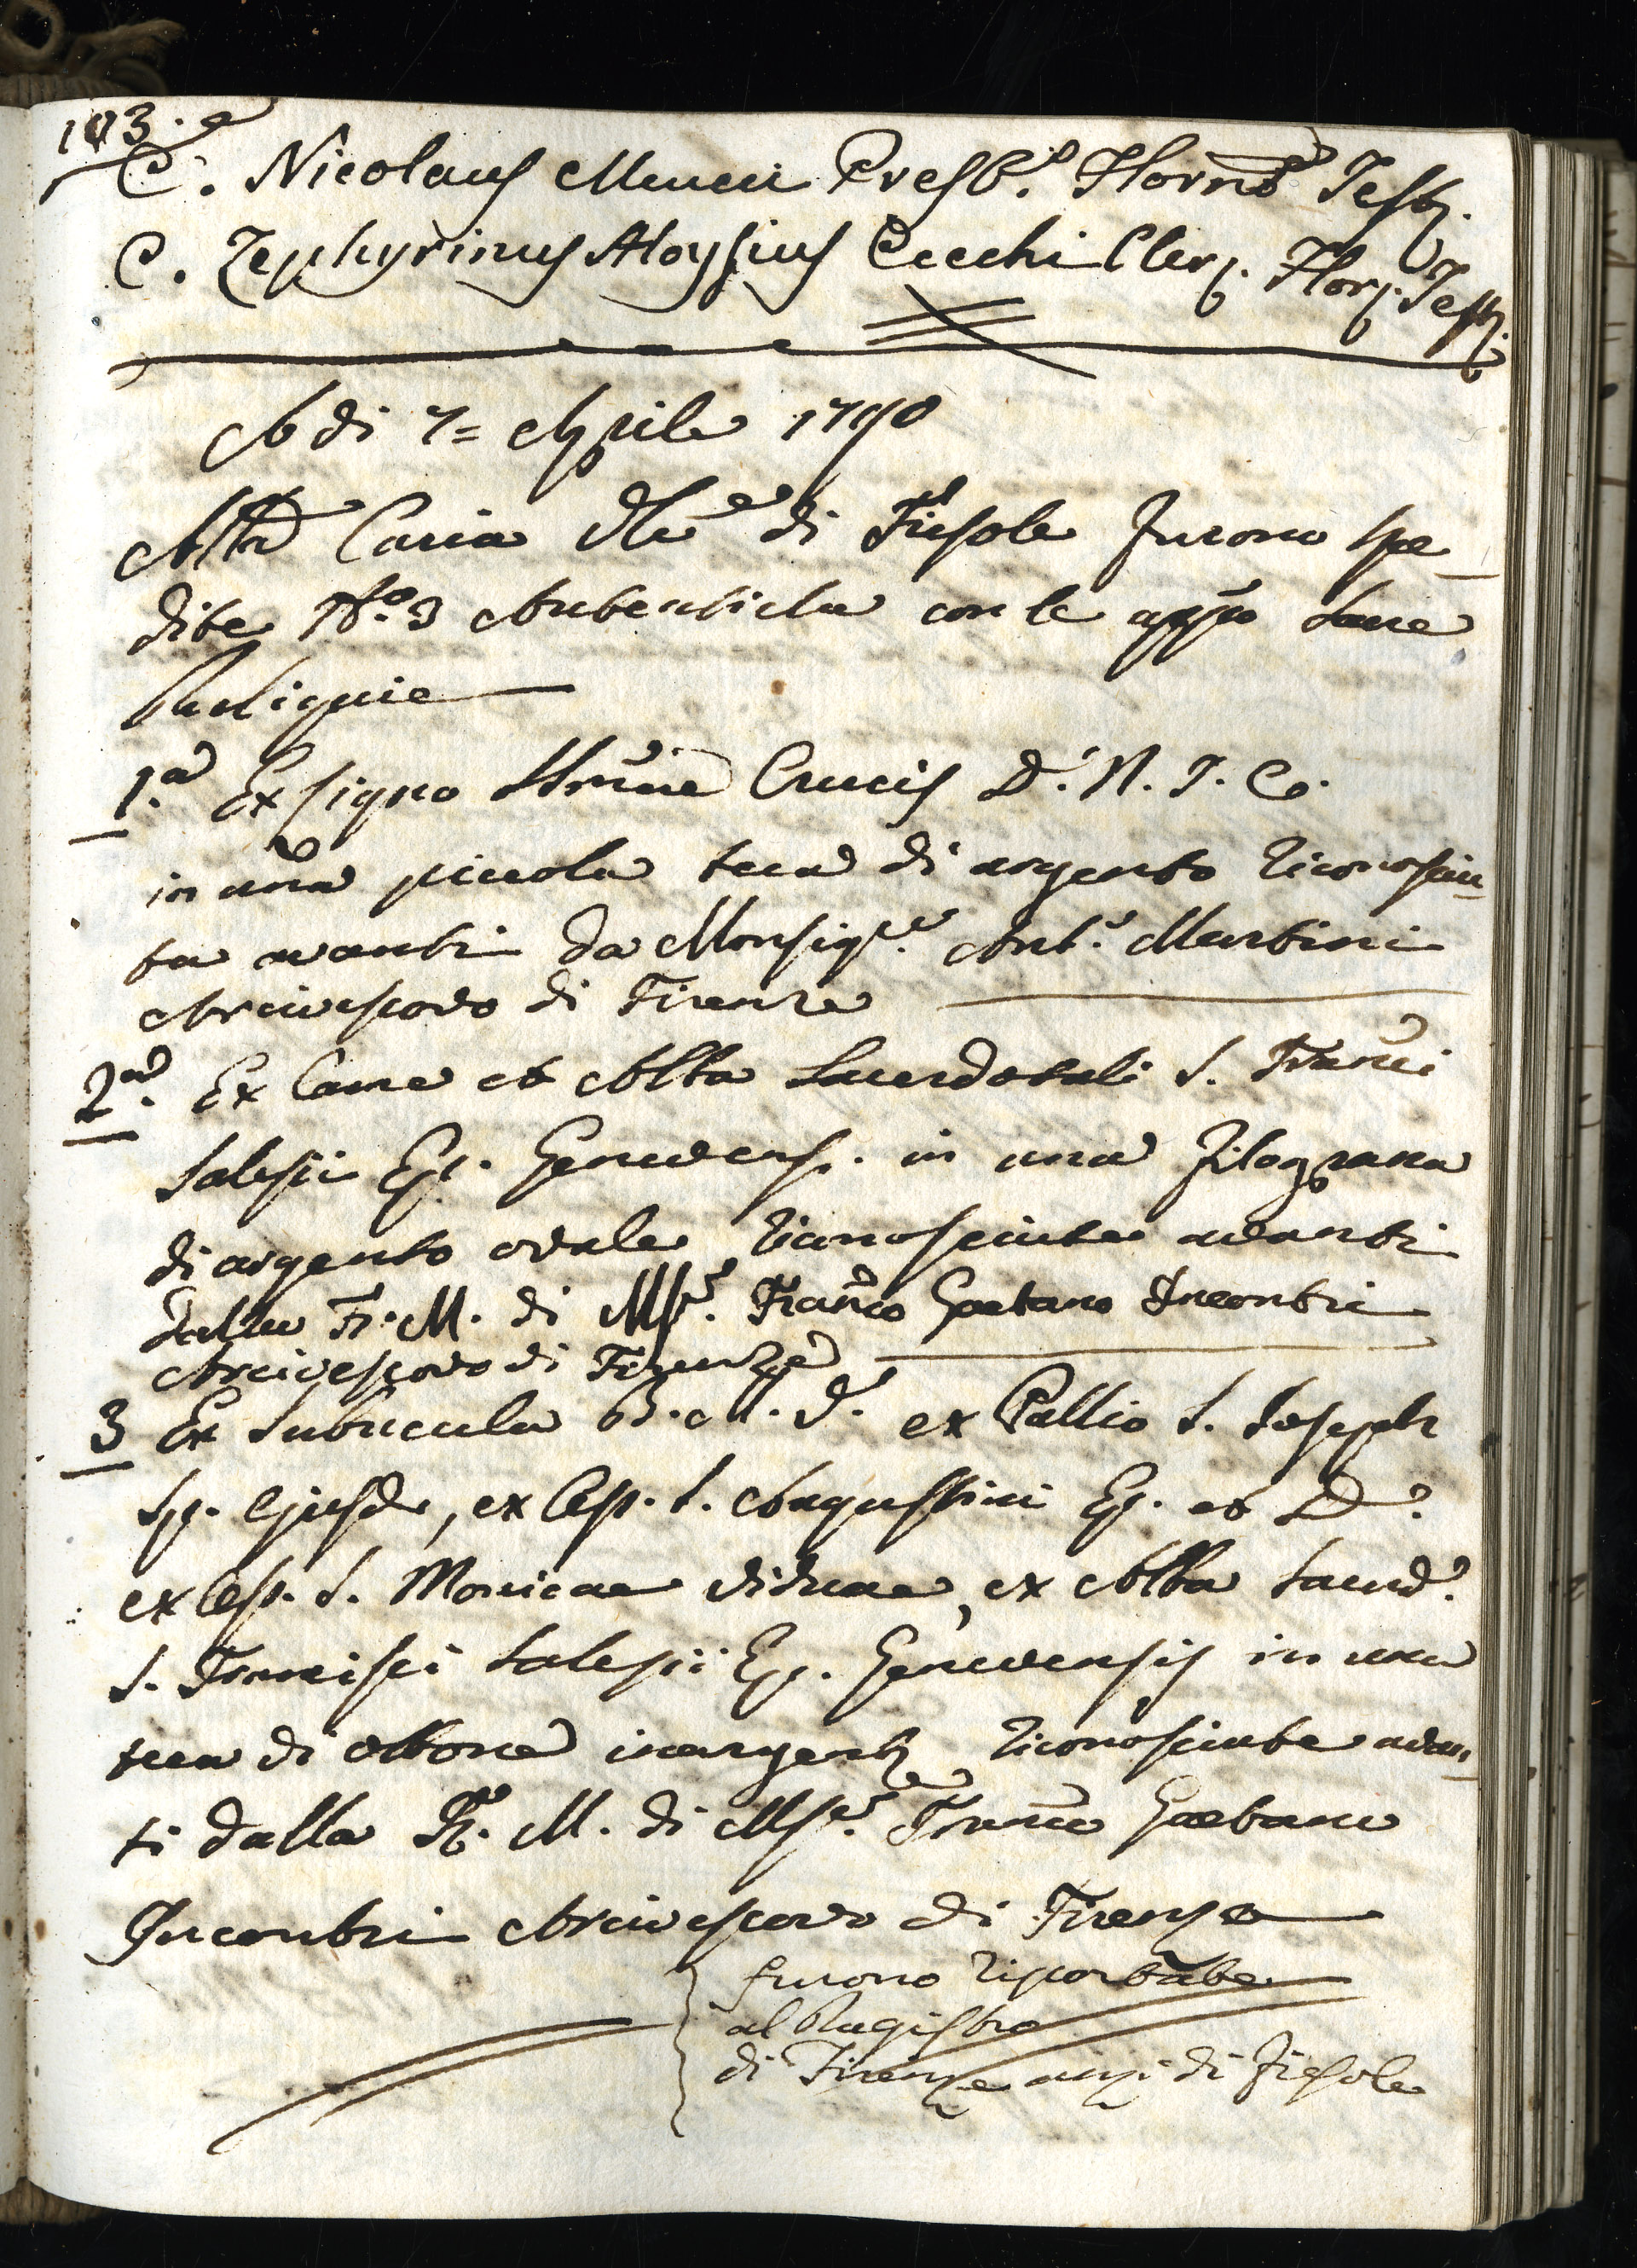 103.
C. Nicolaus Mucci Presb.º Flornõ Test.
C. Zephyrinus Aloysius Cecchi Cler. Flor. Test.
A di 7= Aprile 1790
Alla Curia di Fiesole furono spe-
dite N.º 3 Autentiche con le app.o Sacre
Reliquie
1.a Ex ligno Smae Crucis D. N. J. C.
in una piccola teca di argento riconosciu-
ta avanti da Monsig.re Ant.o Martini
Arcivescovo di Firenze
2.a Ex Carne et Alba Sacerdotali S. Franci
Salesii Ep. Genevens. in una filograna
di argento ovale riconosciute avanti
dalla F. M. di Msr. Franco Gaetano Incontri
Arcivescovo di Firenze
3 Ex Subucula B. M. V. ex Pallio S. Joseph
Sp. Ejusd., ex Oss. S. Augustini Ep. et D.
ex Oss. S. Monicae Viduae, ex Alba Sacerd.
S. Francisci Salesii Ep. Genevensis in una
teca di ottone inargent. riconosciute avan-
ti dalla F. M. di Msr. Franco Gaetano
Incontri Arcivescovo di Firenze
furono riportate
al Registro
di Firenze anzi di Fiesole